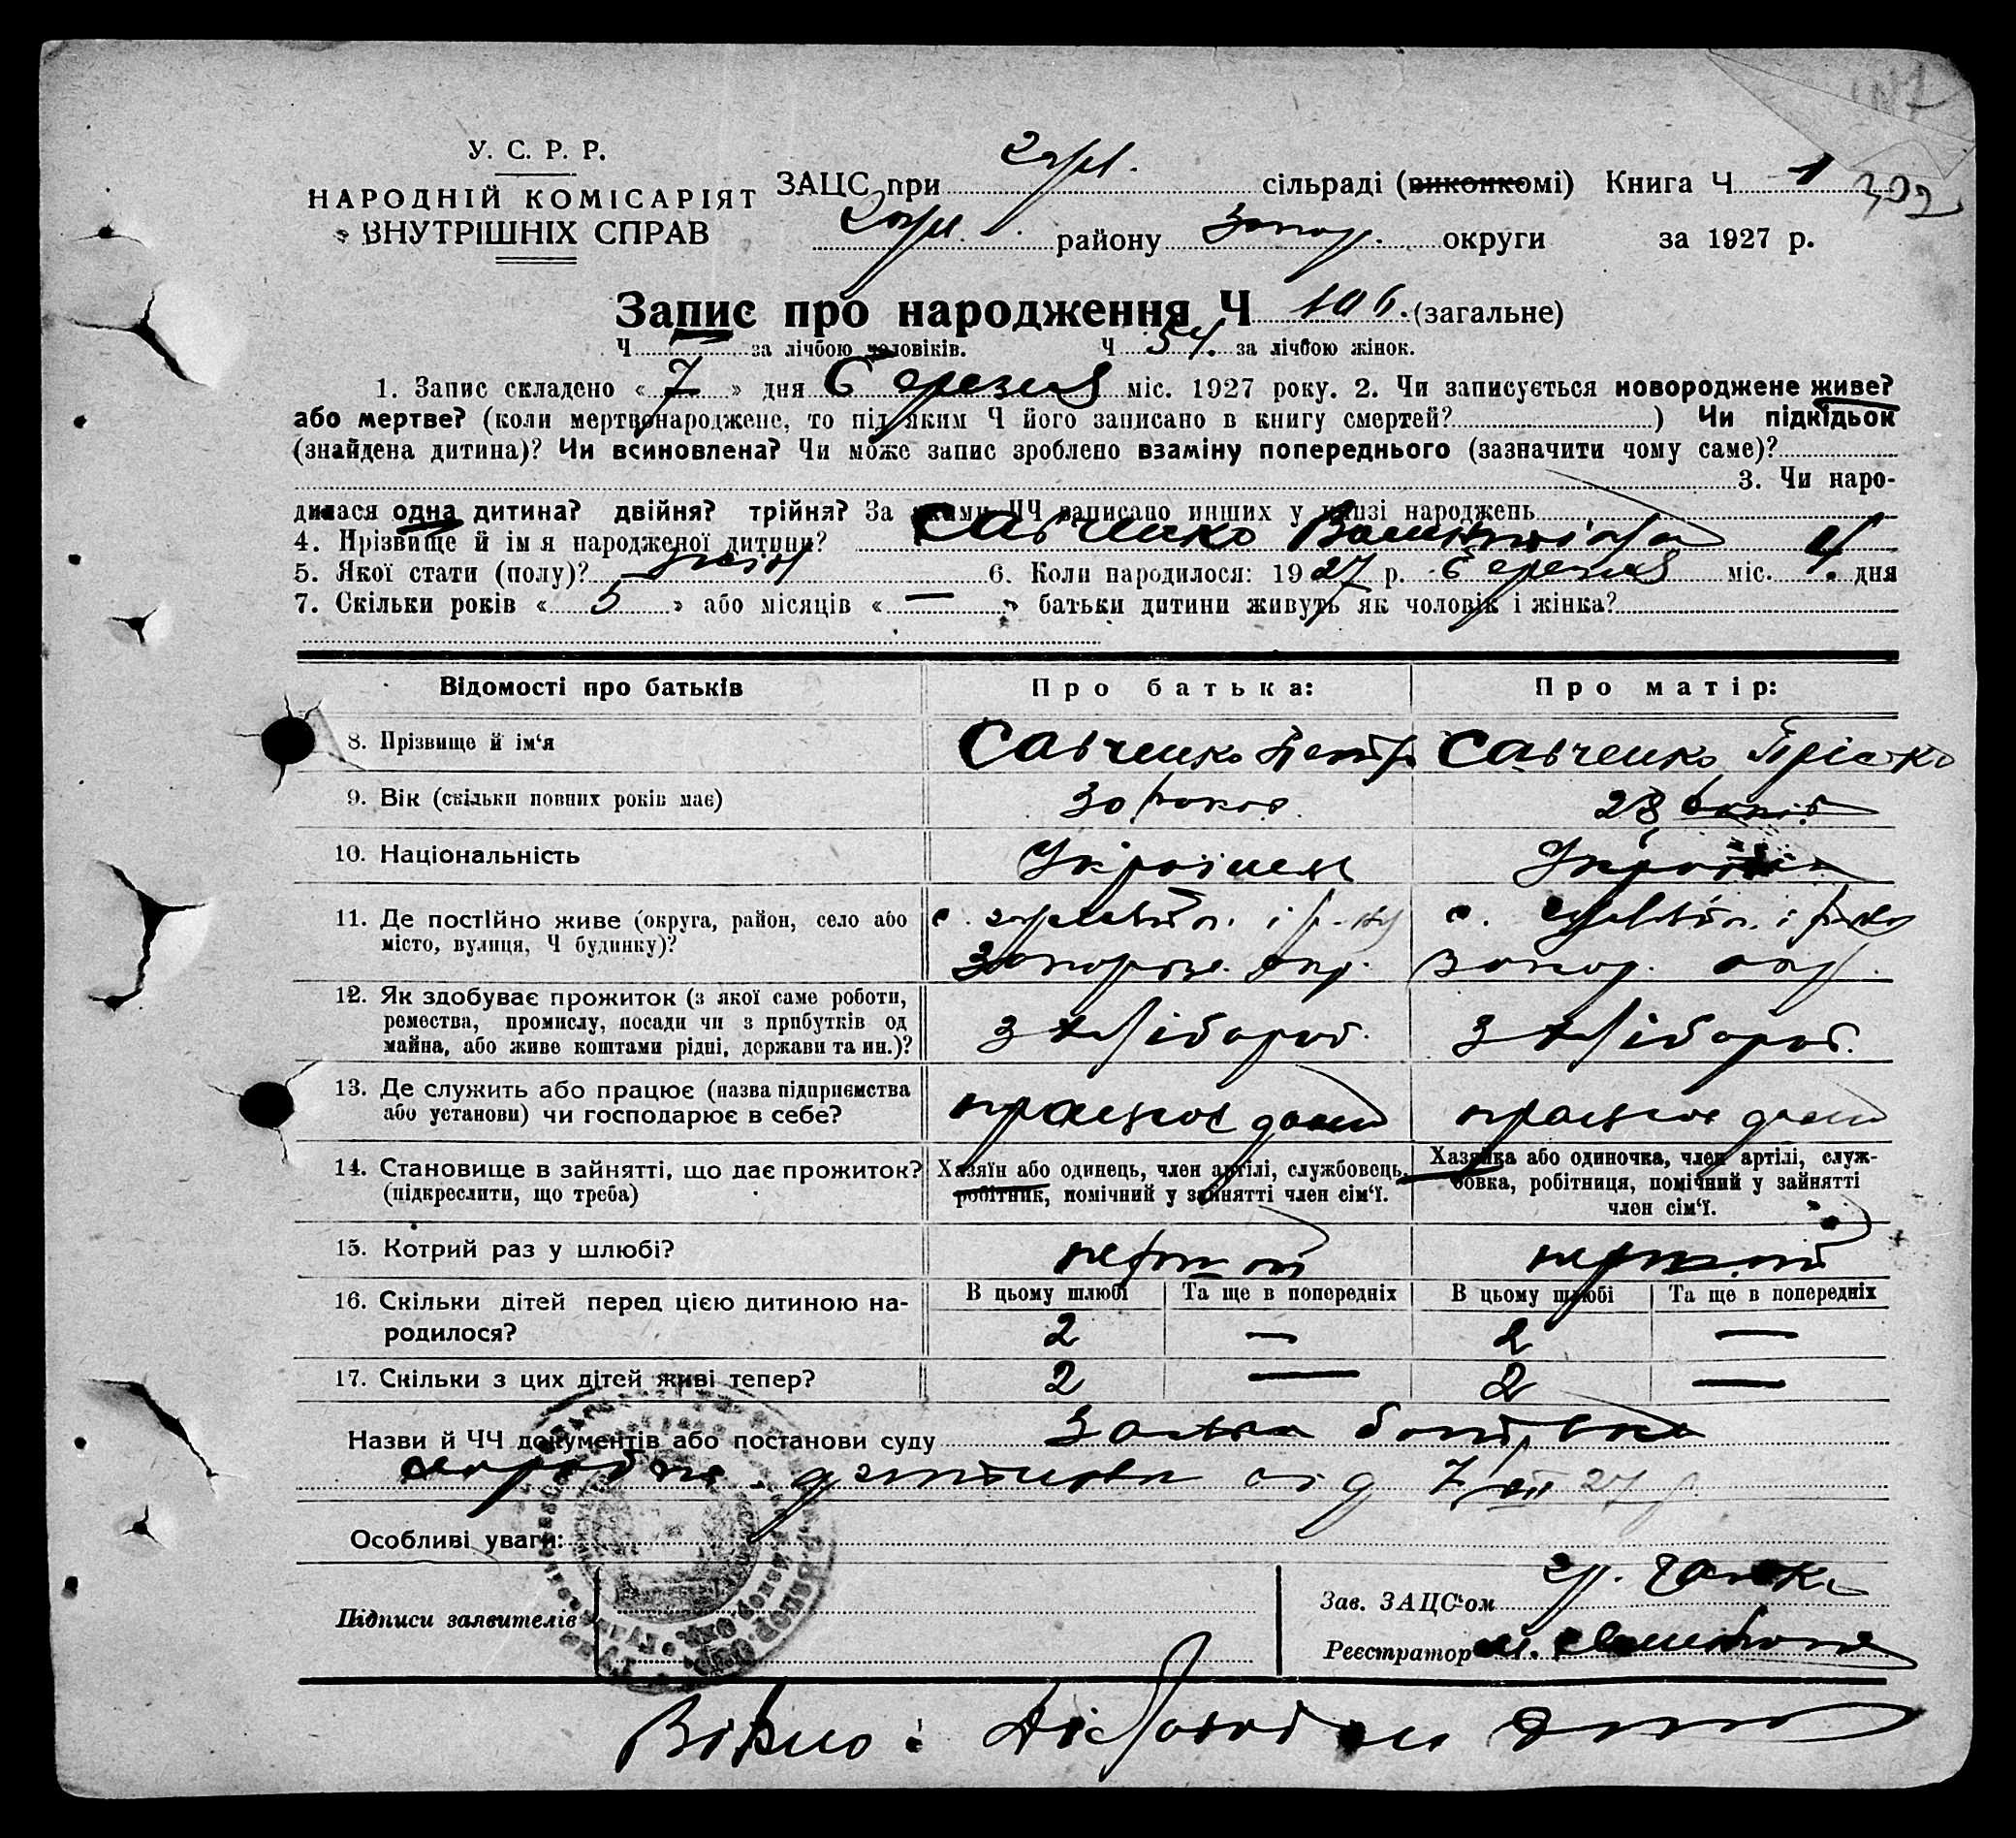 302
У. С. Р. Р.
НАРОДНІЙ КОМІСАРІЯТ
ВНУТРІШНІХ СПРАВ
ЗАЦС при сільраді (виконкомі) Книга Ч 1
району Запор. округи за 1927 р.
Запис про народження Ч 106. (загальне)
Ч за лічбою чоловіків. Ч 54. за лічбою жінок.
1. Запис складено « 7 » дня Березня міс. 1927 року. 2. Чи записується новороджене живе?
або мертве? (коли мертвонароджене, то під яким Ч його записано в книгу смертей? ) Чи підкідьок
(знайдена дитина)? Чи всиновлена? Чи може запис зроблено взаміну попереднього (зазначити чому саме)?
3. Чи наро-
дилася одна дитина? двійня? трійня? За якими ЧЧ записано инших у книзі народжень
4. Прізвище й ім'я народженої дитини? Савченко Валентина
5. Якої стати (полу)? жін 6. Коли народилося: 1927 р. Березня міс. 4. дня
7. Скільки років « 5 » або місяців « — » батьки дитини живуть як чоловік і жінка?
Відомості про батьків Про батька: Про матір:
8. Прізвище й ім'я Савченко Петр Савченко Пріська
9. Вік (скільки повних років має) 30 років 28 років
10. Національність Українец Україн
11. Де постійно живе (округа, район, село або
місто, вулиця, Ч будинку)?
Запорізь. окр. Запор. окр.
12. Як здобуває прожиток (з якої саме роботи,
ремества, промислу, посади чи з прибутків од
майна, або живе коштами рідні, держави та ин.)?
з хлібороб. з хлібороб.
13. Де служить або працює (назва підприємства
або установи) чи господарює в себе?
працює дома працює дома
14. Становище в зайнятті, що дає прожиток?
(підкреслити, що треба)
Хазяїн або одинець, член артілі, службовець,
робітник, помічний у зайнятті член сім'ї.
Хазяйка або одиночка, член артілі, служ-
бовка, робітниця, помічний у зайнятті
член сім'ї.
15. Котрий раз у шлюбі? первий первий
16. Скільки дітей перед цією дитиною на-
родилося?
В цьому шлюбі Та ще в попередніх В цьому шлюбі Та ще в попередніх
2 — 2 —
17. Скільки з цих дітей живі тепер? 2 — 2 —
Назви й ЧЧ документів або постанови суду Заява батька
від 7/III 27 р.
Особливі уваги:
Підписи заявителів
Зав. ЗАЦС'ом
Реєстратор
Вірно: Діловод